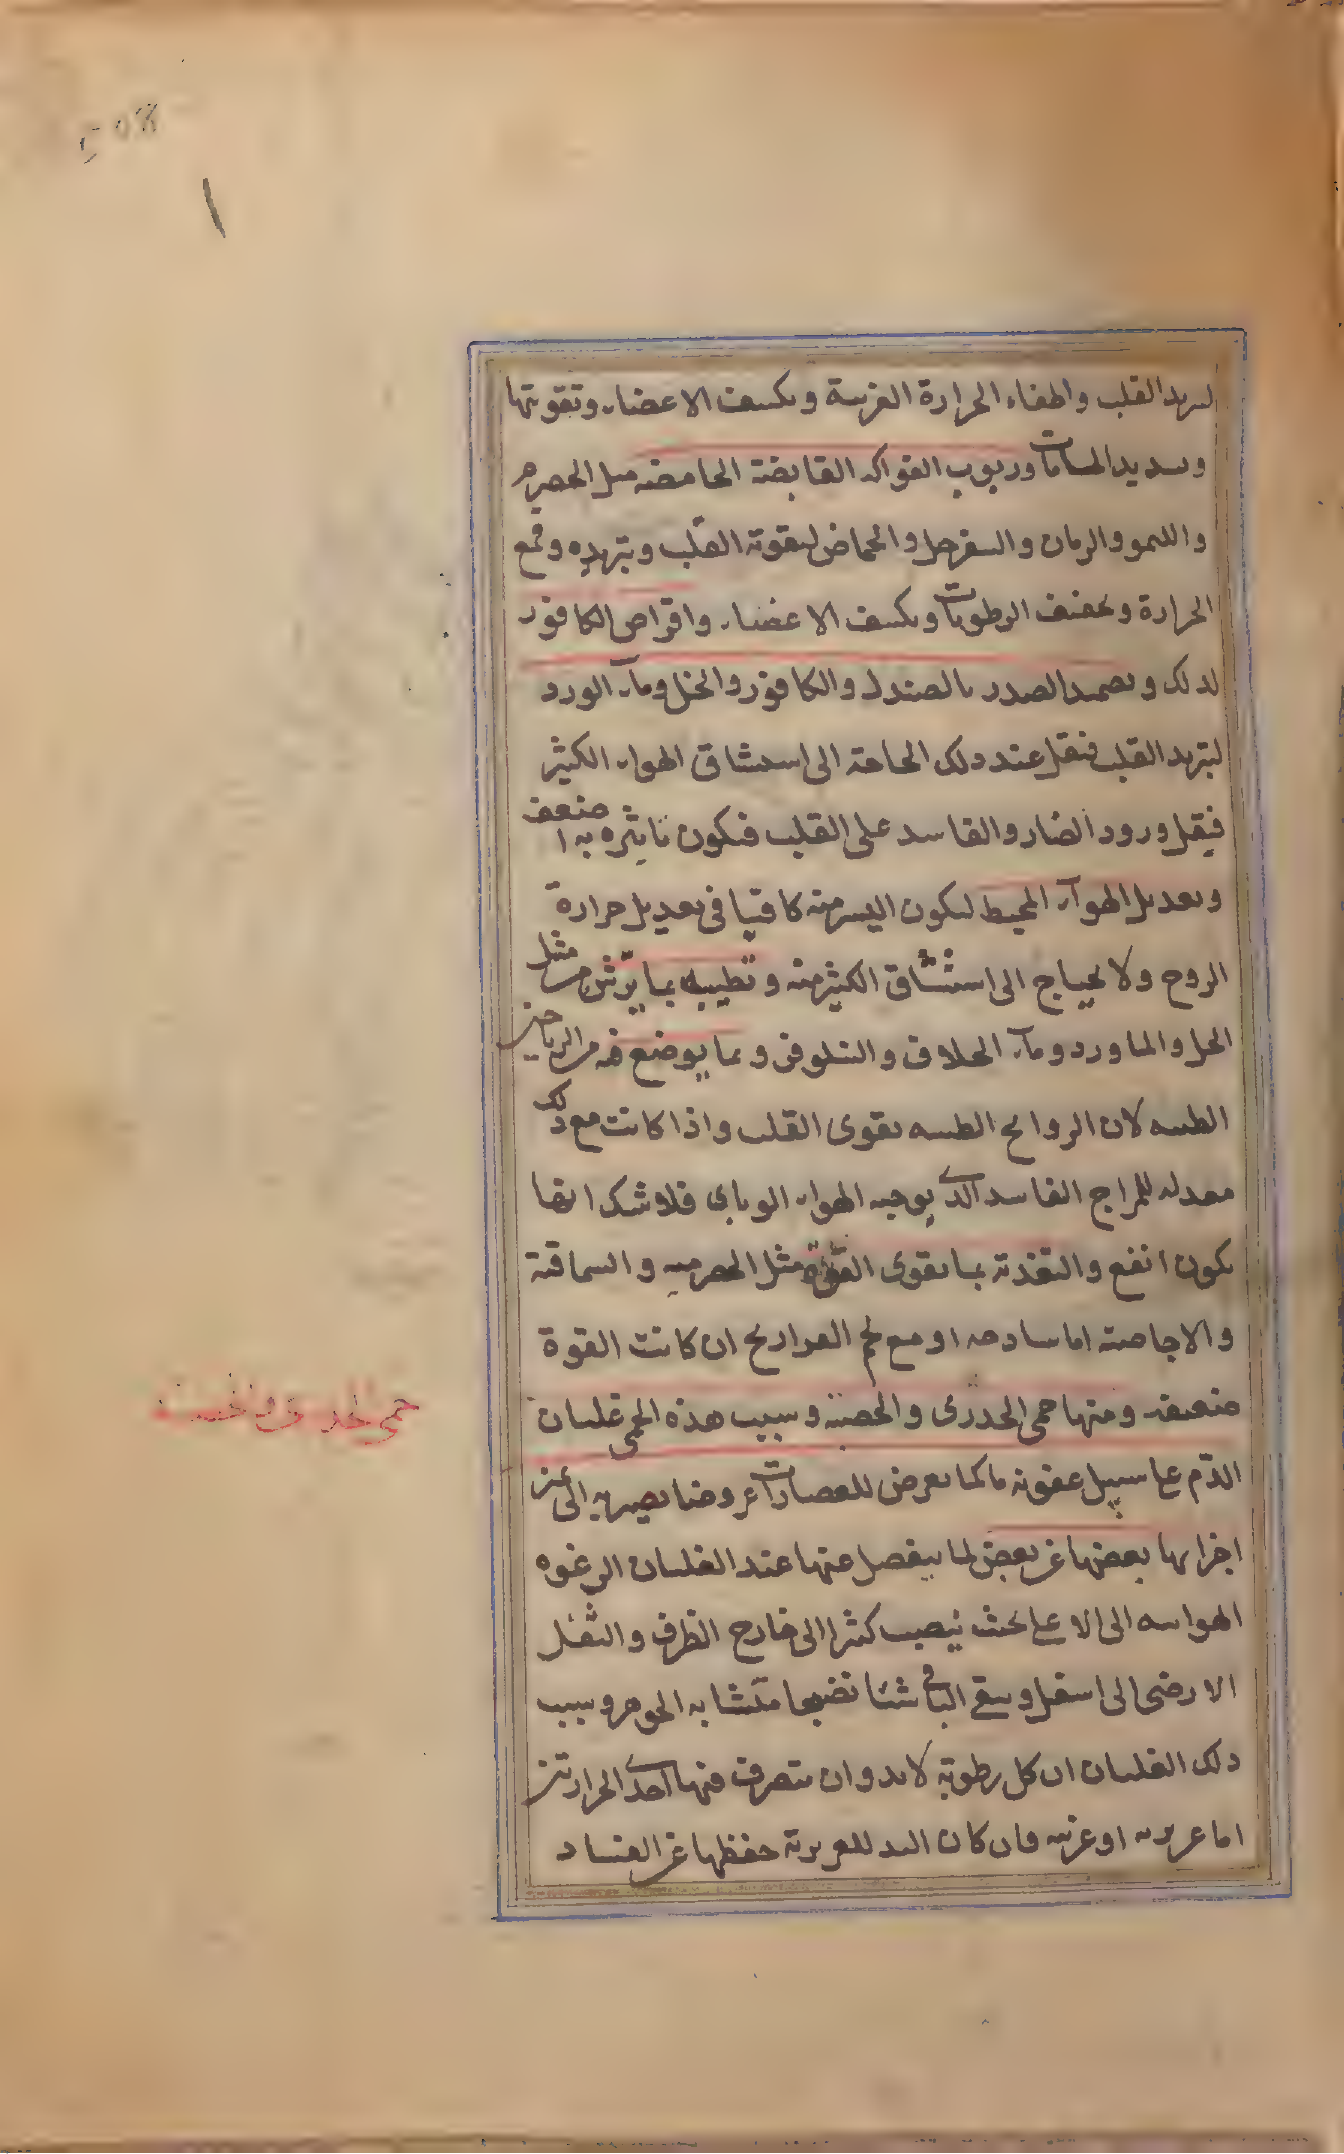 لتبريد القلب واطفاء الحرارة الغريبة وتكثيف الاعضاء وتقويتها
وتسديد المسامات وربوب الفواكه القابضة الحامضه مثل الحصرم
والليمو والرمان والسفرجل والحماض لتقوية القلب وتبريده وقمع
الحرارة وتجفيف الرطوبات وتكثيف الاعضاء واقراص الكافور
لذلك وتضميد الصدر بالصندل والكافور والخل وماء الورد
لتبريد القلب فيقل عند ذلك الحاجة الى استنشاق الهواء الكثير
فيقل ورود الضار والفاسد على القلب فيكون تاثيره به اضعف
وتعديل الهواء المحيط ليكون اليسير منه كافيا فى تعديل حرارة
الروح ولا يحتاج الى استنشاق الكثير منه وتطييبه بما يرش من مثل
الخل والماورد وماء الخلاف والنيلوفر وبما يوضع فيه من الرياحين
الطيبه لان الروايح الطيبه تقوى القلب واذا كانت مع ذلك
معدله للمزاج الفاسد الذى يوجبه الهواء الوبائى فلا شك انها
تكون انفع والتغذية بما يقوى القوة مثل الحصرميه والسماقية
والاجاصية اما ساذجه او مع لحم الفراريج ان كانت القوة
ضعيفه ومنها حمى الجدرى والحصبة وسبب هذه الحمى غليان
الدم على سبيل عفونة ما كما يعرض للعصارات عروضا يصير به الى تميز
اجزائها بعضها عن بعض لما ينفصل عنها عند الغليان الرغوه
الهوائيه الى الاعلى بحيث ينصب كثيرا الى خارج الظرف والثفل
الارضى الى اسفل ويبقى الباقى شيئا نضيجا متشابه الجوهر وسبب
ذلك الغليان ان كل رطوبة لابد وان يتصرف فيها احدى الحرارتين
اما غريزيه او غريبه فان كان اليد للغريزية حفظها عن الفساد
حمى الجدرى والحصبة